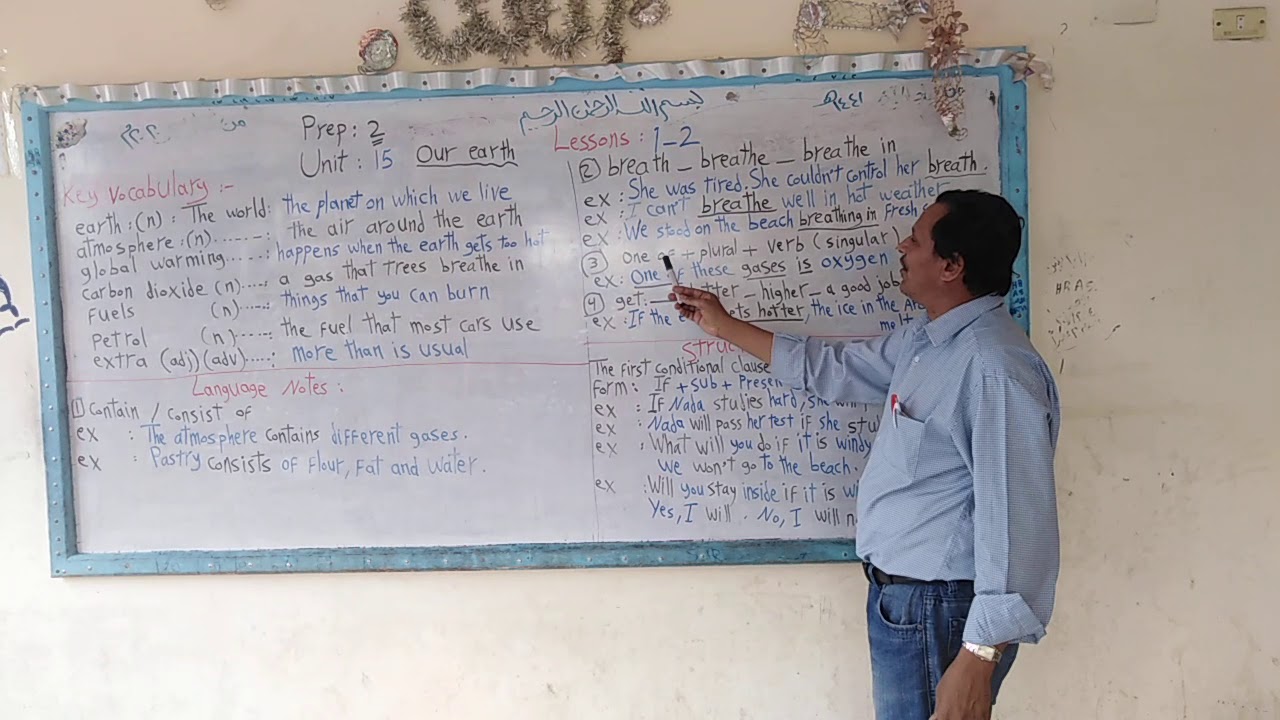 بسم الله الرحمن الرحيم
Prep: 2
Lessons: 1-2
Unit: 15 Our earth
Key Vocabulary :-
earth: (n) : The world: the planet on which we live
atmosphere: (n)....... : the air around the earth
global warming.....: happens when the earth gets too hot
carbon dioxide (n)....: a gas that trees breathe in
Fuels (n).....: things that you can burn
Petrol (n).....: the fuel that most cars use
extra (adj)(adv)....: more than is usual
Language Notes :
① Contain / consist of
ex : The atmosphere contains different gases.
ex : Pastry consists of flour, fat and water.
② breath - breathe - breathe in
ex : She was tired. She couldn't control her breath.
ex : I can't breathe well in hot weather
ex : We stood on the beach breathing in fresh
③ one of + plural + verb (singular)
ex: One of these gases is oxygen
④ get: - higher - a good job
ex : If the gets hotter, the ice in the
melt
The first conditional clause
Form: If + sub + Presen
ex : If Nada studies hard, she will
ex : Nada will pass her test if she stu
ex : What will you do if it is windy
We won't go to the beach.
ex : Will you stay inside if it is wi
Yes, I will . No, I will n